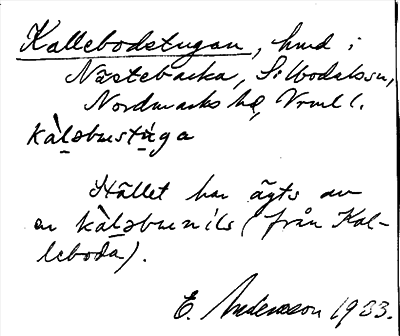 Kallebodstugan, hmd i
Nästebacka, Silbodalssn,
Nordmarks hd, Vrml l.
kàlǝbustúga
Stället har ägts av
en kàlǝbunils (från Kal-
leboda).
E. Andersson 1933.